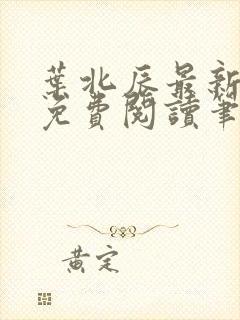 葉北辰最新
免費閱讀筆
黃定